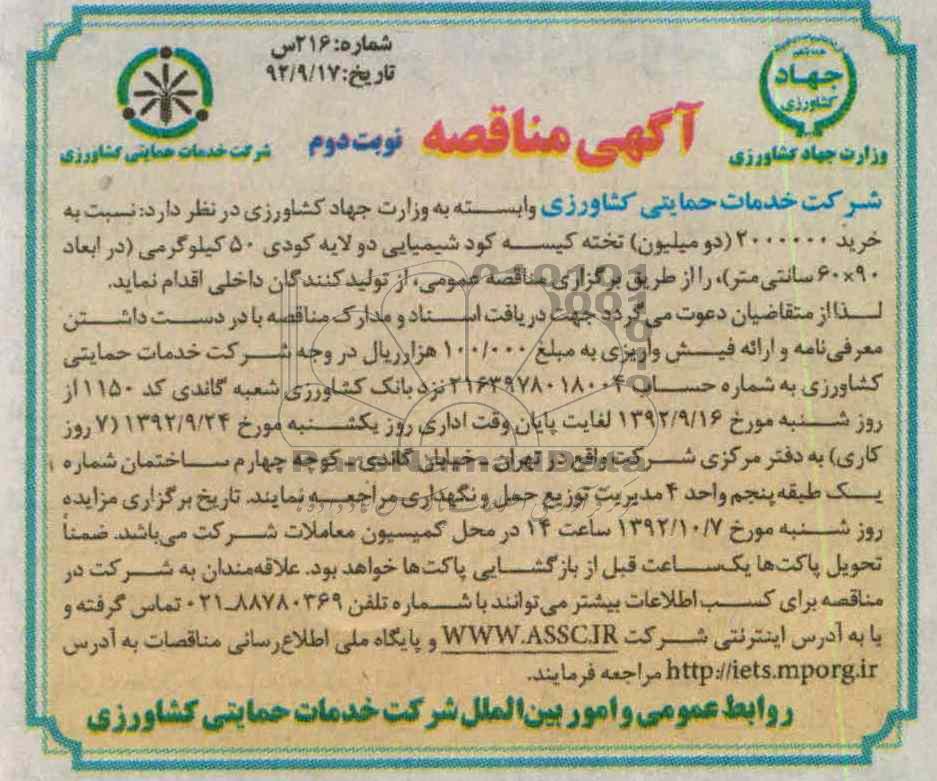 شماره: ۲۱۶س
تاریخ: ۹۲/۹/۱۷
جهاد
کشاورزی
وزارت جهاد کشاورزی
آگهی مناقصه
نوبت دوم
شرکت خدمات حمایتی کشاورزی
شرکت خدمات حمایتی کشاورزی وابسته به وزارت جهاد کشاورزی در نظر دارد: نسبت به
خرید ۲۰۰۰۰۰۰ (دو میلیون) تخته کیسه کود شیمیایی دو لایه کودی ۵۰ کیلوگرمی (در ابعاد
۹۰×۶۰ سانتی‌متر)، را از طریق برگزاری مناقصه عمومی، از تولیدکنندگان داخلی اقدام نماید.
لذا از متقاضیان دعوت می‌گردد جهت دریافت اسناد و مدارک مناقصه با در دست داشتن
معرفی‌نامه و ارائه فیش واریزی به مبلغ ۱۰۰/۰۰۰ هزارریال در وجه شرکت خدمات حمایتی
کشاورزی به شماره حساب ۲۱۶۳۹۷۸۰۱۸۰۰۴ نزد بانک کشاورزی شعبه گاندی کد ۱۱۵۰ از
روز شنبه مورخ ۱۳۹۲/۹/۱۶ لغایت پایان وقت اداری روز یکشنبه مورخ ۱۳۹۲/۹/۲۴ (۷ روز
کاری) به دفتر مرکزی شرکت واقع در تهران - خیابان گاندی - کوچه چهارم ساختمان شماره ۱
یک طبقه پنجم واحد ۴ مدیریت توزیع حمل و نگهداری مراجعه نمایند. تاریخ برگزاری مزایده
روز شنبه مورخ ۱۳۹۲/۱۰/۷ ساعت ۱۴ در محل کمیسیون معاملات شرکت می‌باشد. ضمناً
تحویل پاکت‌ها یک‌ساعت قبل از بازگشایی پاکت‌ها خواهد بود. علاقه‌مندان به شرکت در
مناقصه برای کسب اطلاعات بیشتر می‌توانند با شماره تلفن ۸۸۷۸۰۳۶۹-۰۲۱ تماس گرفته و
یا به آدرس اینترنتی شرکت WWW.ASSC.IR و پایگاه ملی اطلاع‌رسانی مناقصات به آدرس
http://iets.mporg.ir مراجعه فرمایند.
روابط عمومی و امور بین‌الملل شرکت خدمات حمایتی کشاورزی